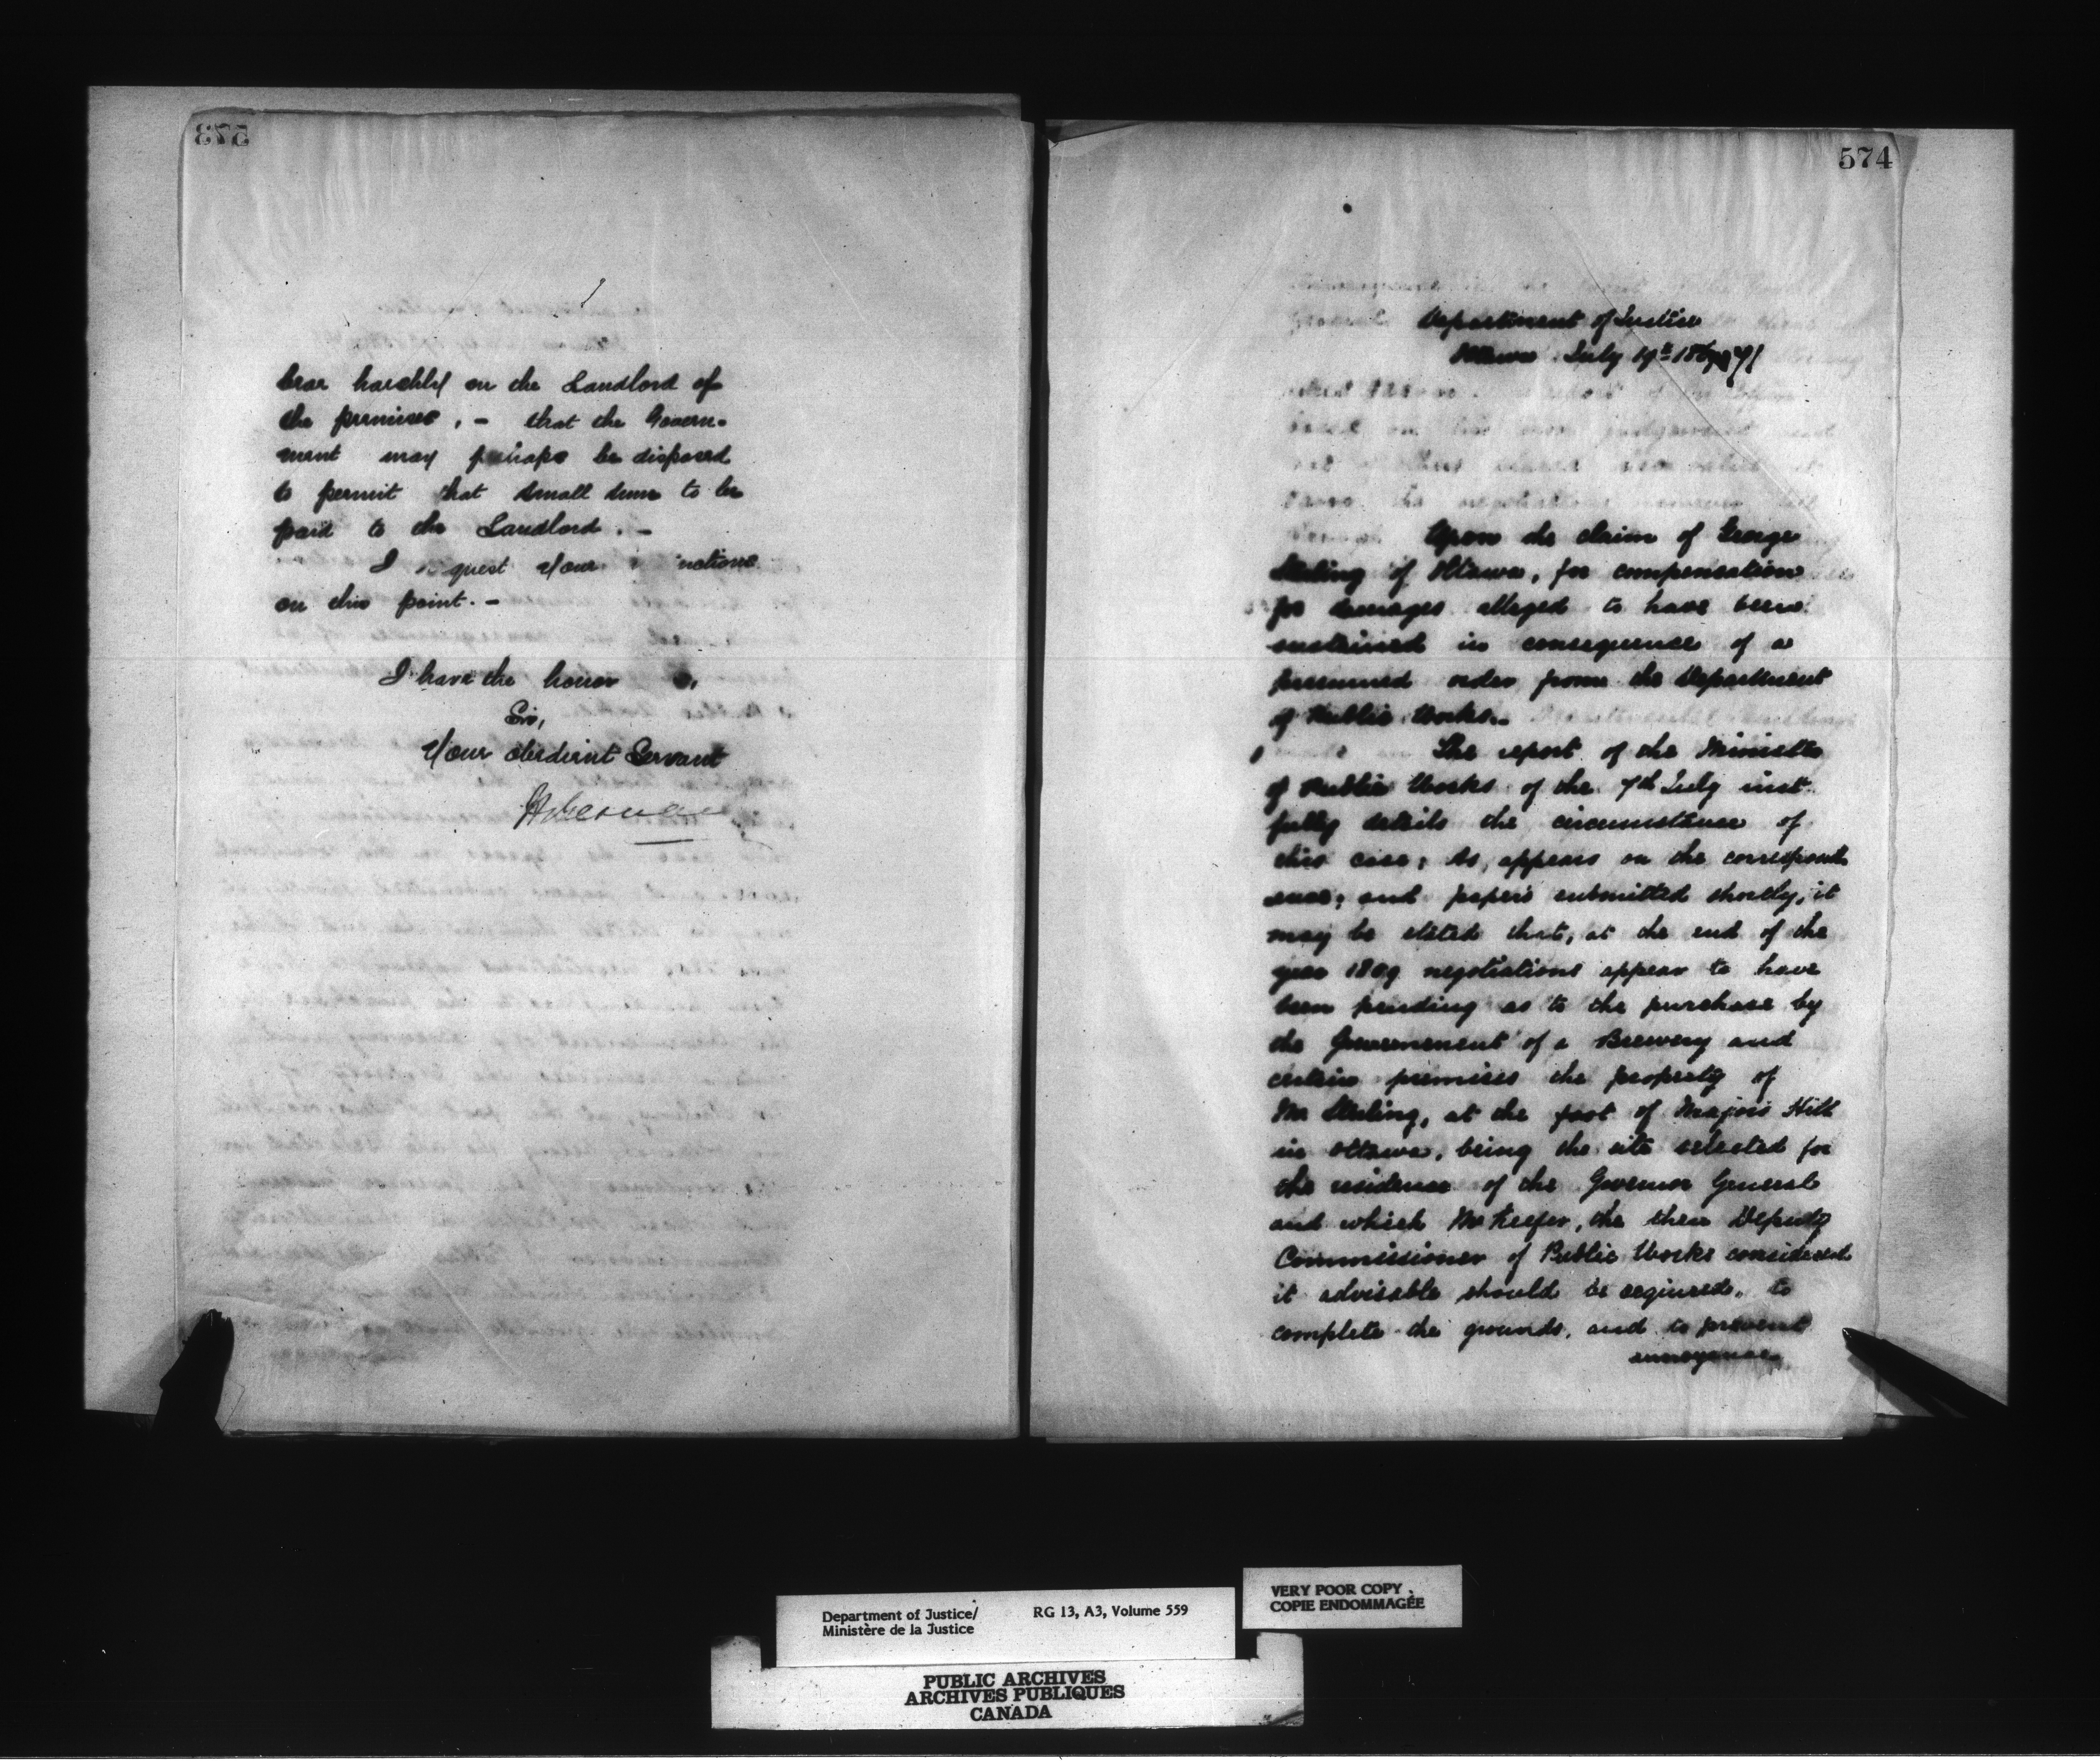 573
bear harshly on the Landlord of
the premises, – that the Govern-
ment may perhaps be disposed
to permit that small sum to be
paid to the Landlord. –
I request your
on this point. –
I have the honor
Sir,
Your obedient Servant
574
Department of Justice
Ottawa July 19th 1871
Upon the claim of George
Sterling of Ottawa, for compensation
for damages alleged to have been
sustained in consequence of a
presumed order from the Department
of Public Works.
The report of the Minister
of Public Works of the 7th July inst.
fully details the circumstance of
this case; As appears on the correspond
ence; and papers submitted shortly, it
may be stated that, at the end of the
year 1869 negotiations appear to have
been pending as to the purchase by
the Government of a Brewery and
certain premises the property of
Mr Sterling, at the foot of Majors Hill
in Ottawa, being the site selected for
the residence of the Governor General
and which Mr Keefer, the then Deputy
Commissioner of Public Works considered
it advisable should be acquired, to
complete the grounds, and to prevent
annoyance
Department of Justice/ RG 13, A3, Volume 559
Ministère de la Justice
VERY POOR COPY
COPIE ENDOMMAGÉE
PUBLIC ARCHIVES
ARCHIVES PUBLIQUES
CANADA